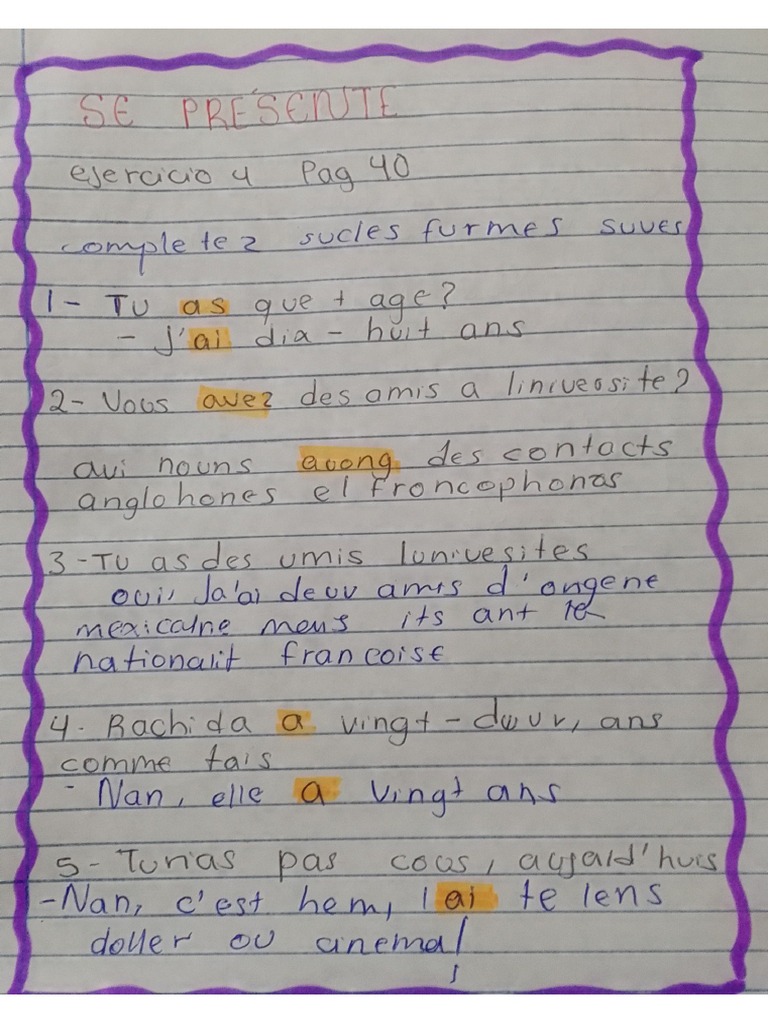 SE PRÉSENTE
ejercicio 4 Pag 40
complete z sucles furmes suves
1- TU as que t age?
- J'ai dia - huit ans
2- Vous avez des amis a liniveosite?
oui nouns avong des contacts
anglohones el froncophonas
3 - TU as des umis lunivesites
oui, Ja'ai deuv amis d'ongene
mexicalne meus its ant le
nationalit francoise
4. Rachida a vingt - deuur, ans
comme tais
- Nan, elle a vingt ans
5 - Turias pas cous, aujald'huis
- Nan, c'est hem, l ai te lens
doller ou cinema!